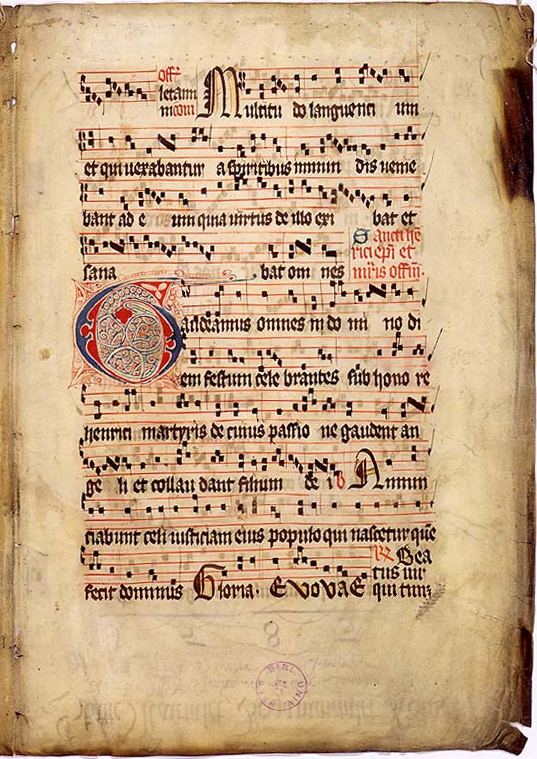 off.
letam
Multitu do languenti um
et qui uexabantur a spiritibus inmun dis uenie
bant ad e um quia uirtus de illo exi bat et
Sancti he
rici epi et
sana bat om nes mris offm.
Gaudeamus omnes in do mi no di
em festum cele brantes sub hono re
henrici martyris de cuius passio ne gaudent an
ge li et collau dant filium de i v Annun
ciabunt celi iusticiam eius populo qui nascetur que
Bea
tus uir
fecit dominus Gloria. Evovae qui tim
BIBL. UNIV.